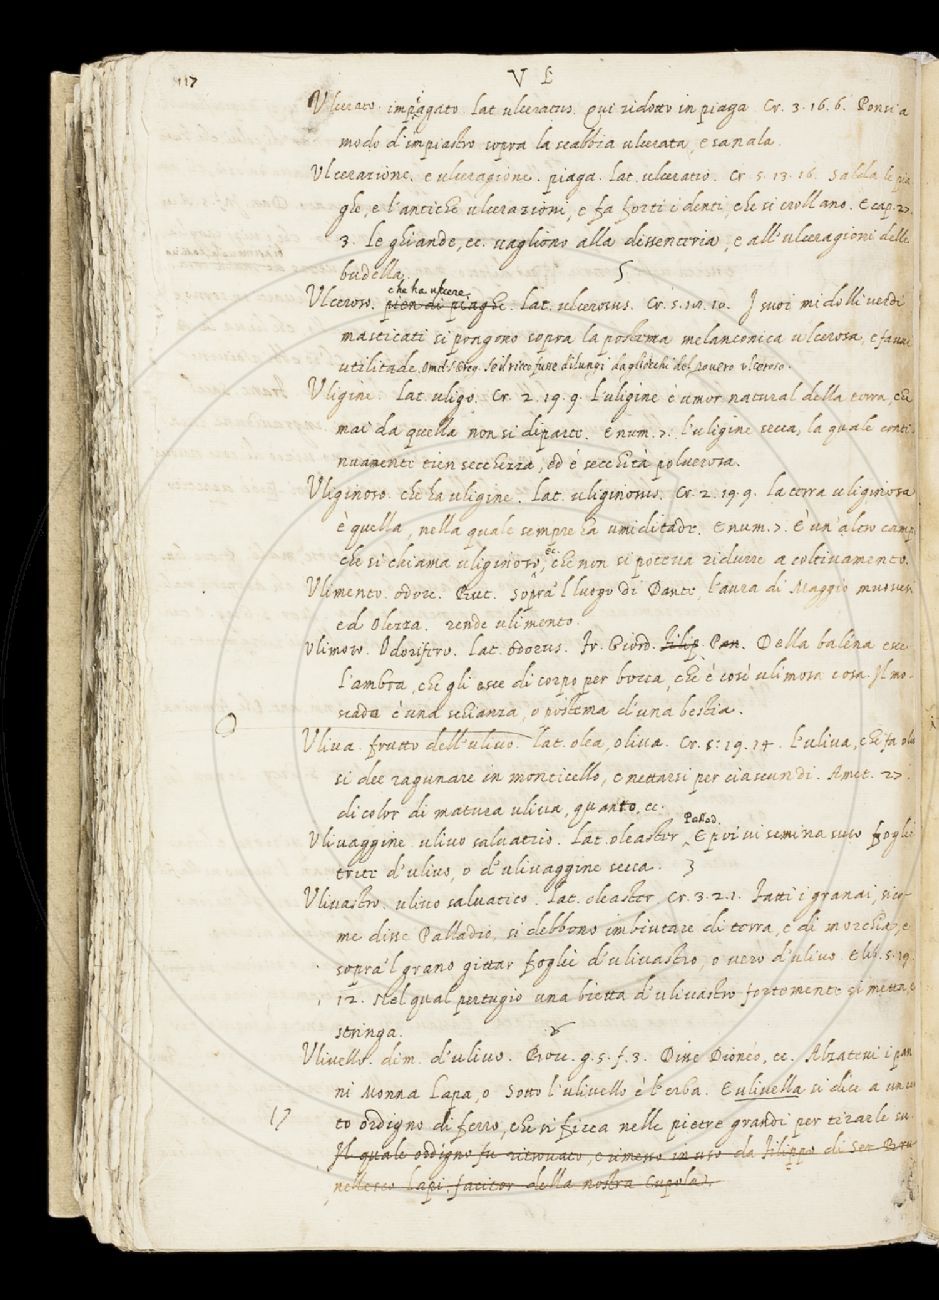 117
V L
Vlcerato. impiagato. lat. ulceratus. qui ridotto in piaga. Cr. 3. 16. 6. Ponsi a
modo d'impiastro sopra la scabbia ulcerata, e sanala.
Vlcerazione. e ulceragione. piaga. lat. ulceratio. Cr. 5. 13. 16. Salda le pia
ghe, e l'antiche ulcerazioni, e fa forti i denti, che si crollano. E cap. 2>.
3. Le ghiande, ec. vagliono alla dissenteria, e all'ulceragioni delle
budella.
che ha ulcere
Vlceroso. pien di piaghe. lat. ulcerosus. Cr. 5. 10. I suoi midolli verdi
masticati si pongono sopra la postema melanconica ulcerosa, e fanvi
utilitade. Omel. S. Greg. Se il ricco fusse dilungi dagliocchi del povero vlceroso.
Vligine. lat. uligo. Cr. 2. 19. 9. L'uligine è umor natural della terra, che
mai da quella non si diparte. E num. >. l'uligine secca, la quale conti-
nuamente tien secchezza, ed è seccità polverosa.
Vliginoso. che ha uligine. lat. uliginosus. Cr. 2. 19. 9. La terra uliginosa
è quella, nella quale sempre ha umiditade. E num. >. E' un'altro camp
che si chiama uliginoso, ec. che non si poteva ridurre a coltivamento.
Vlimento. odore. But. Sopra'l luogo di Dante, l'aura di Maggio muovesi
ed Olezza. rende ulimento.
Vlimoso. Odorifero. lat. odorus. Fr. Giord. Filip. Pan. Della balena esce
l'ambra, che gli esce di corpo per bocca, che è così ulimosa cosa. Il mo-
scado è una schianza, o postema d'una bestia.
Vliva. frutto dell'ulivo. lat. olea, oliva. Cr. 5. 19. 14. L'uliva, che fa olio
si dee ragunare in monticello, e nettarsi per ciascun dì. Amet. 2>.
di color di matura uliva, quanto, ec.
Pallad.
Vlivaggine ulivo salvatico. lat. oleaster. E poi vi semina suso foglie
trite d'ulivo, o d'ulivaggine secca.
Vlivastro. ulivo salvatico. lat. oleaster Cr. 3. 2. 1. Fatti i granai, sico
me disse Palladio, si debbono imbiutare di terra, e di morchia, e
sopra'l grano gittar foglie d'ulivastro, o vero d'ulivo. E lib. 5. 19.
12. Nel qual pertugio una bietta d'ulivastro fortemente si metta, e
stringa.
Vlivello. dim. d'ulivo. Bocc. g. 5. f. 3. Disse Dioneo, ec. Alzatevi i pan
ni Monna Lapa, o Sotto l'ulivello è l'erba. E ulivella si dice a un cer
to ordigno di ferro, che si ficca nelle pietre grandi per tirarle su.
Il quale ordigno fu ritrovato, e messo in uso da Filippo di Ser Bru
nellesco Lapi, facitor della nostra Cupola.